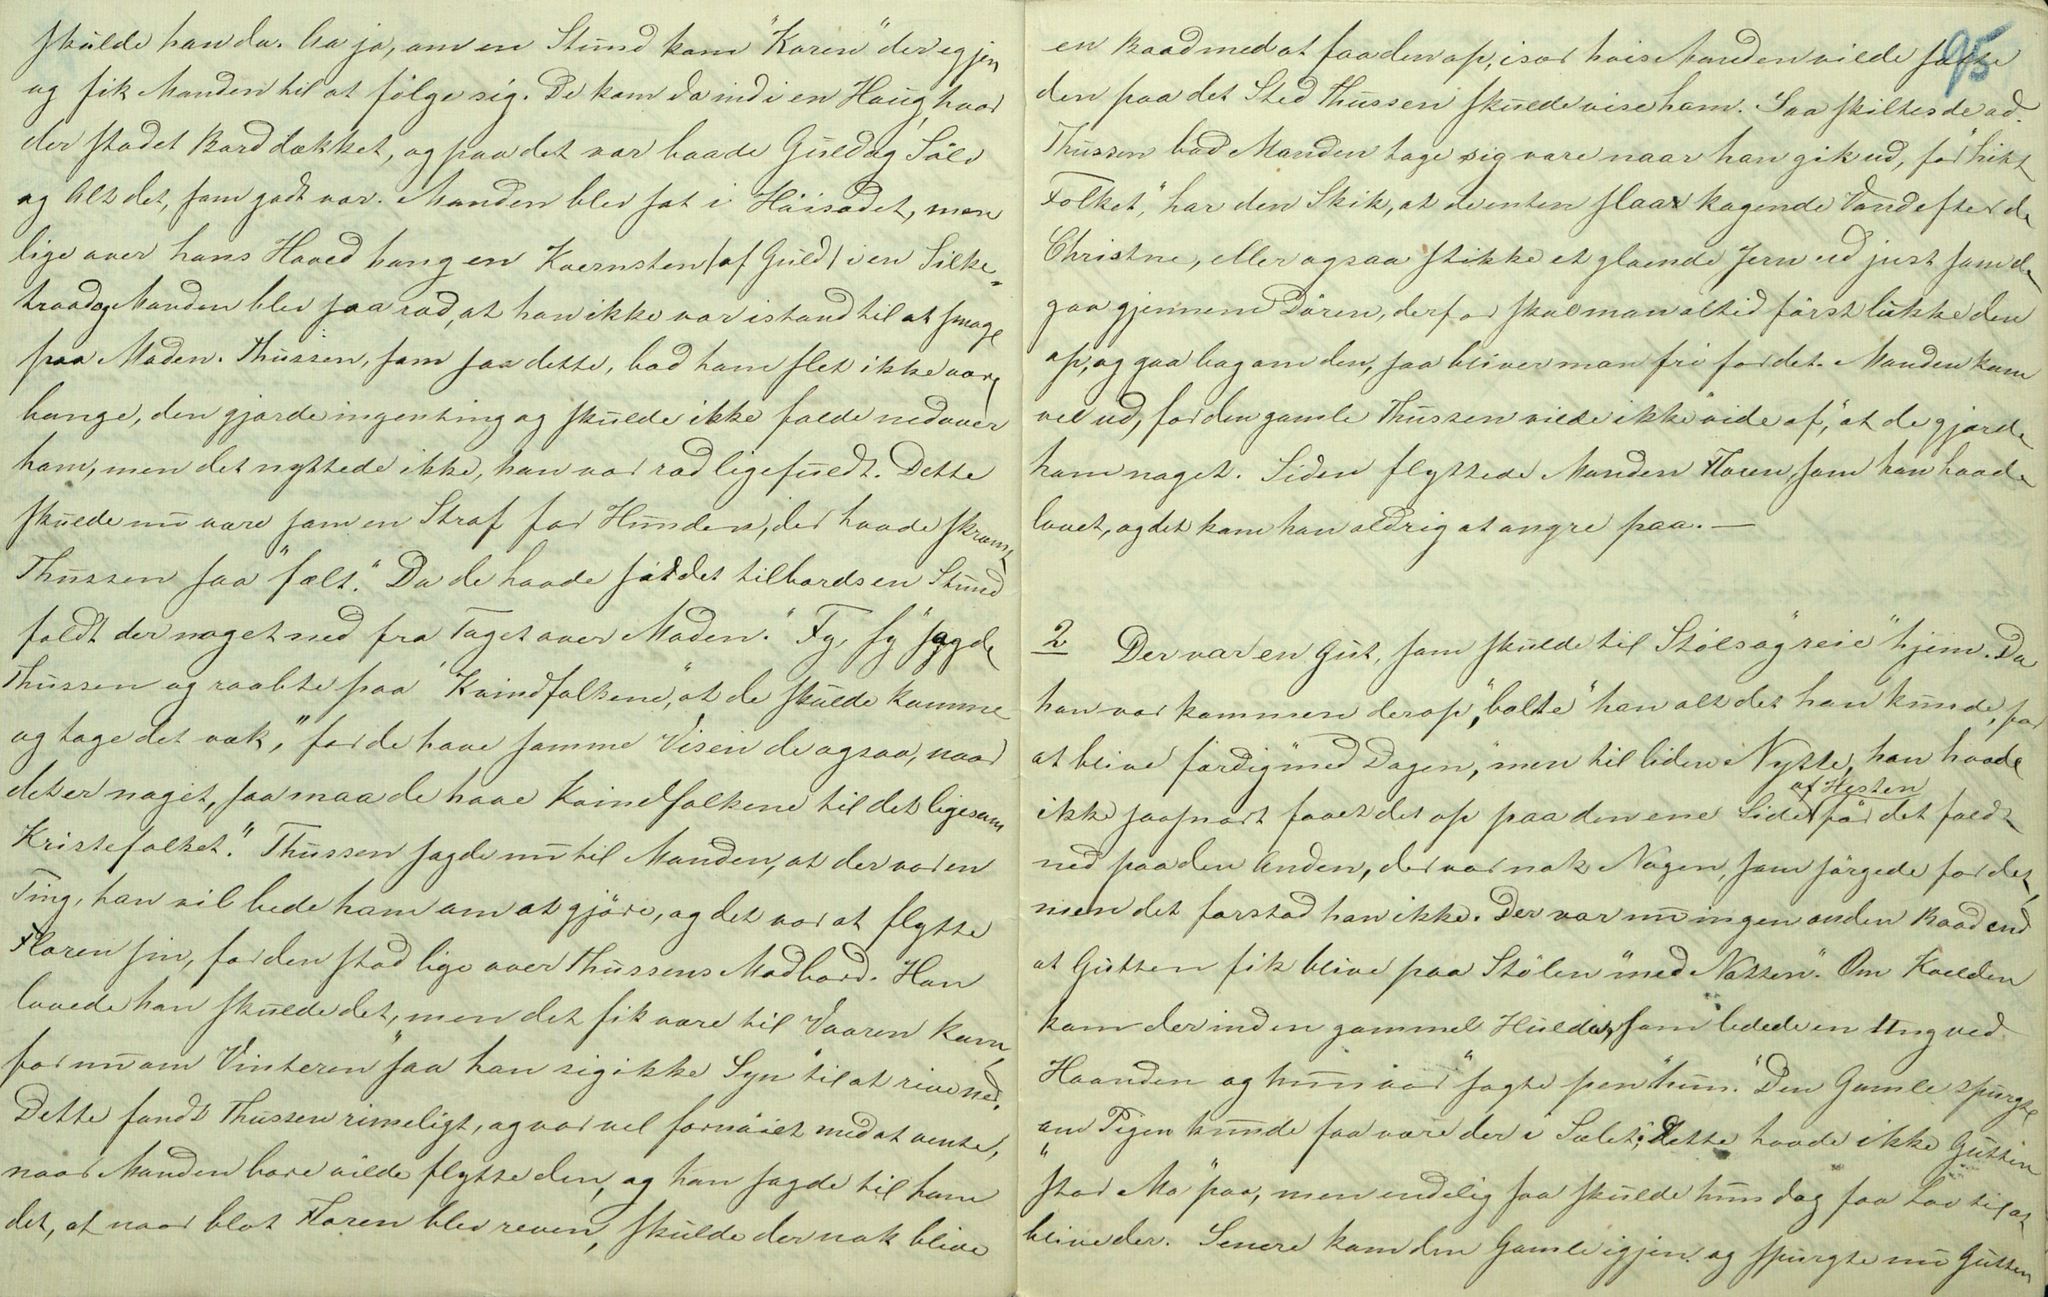 skulde han da. Aa ja, om en Stund kom "Karen" der igjen
og fik Manden til at følge sig. De kom da ind i en Haug, hvor
der stodet Bord dækket, og paa det var baade Guld og Sølv
og Alt det, som godt var. Manden blev sat i Høisædet, men
lige over hans Hoved hang en Kvernsten (af Guld) i en Silke-
traad og Manden blev saa ræd, at han ikke var istand til at smage
paa Maden. Thussen, som saa dette, bad ham slet ikke være
bange, den gjorde ingenting og skulde ikke falde ned over
ham, men det nyttede ikke, han var ræd ligefuldt. Dette
skulde nu være som en Straf for Hunden, der havde skræmt
Thussen saa "fælt." Da de havde siddet tilbords en Stund
faldt der noget ned fra Taget over Maden. "Fy, fy" sagde
Thussen og raabte paa "Kvindfolkene," at de skulde komme
og tage det væk, "for de have samme Visen de ogsaa, naar
det er noget, saa maa de have Kvindfolkene til det ligesom
Kristefolket." Thussen sagde nu til Manden, at der var en
Ting, han vil bede ham om at gjøre, og det var at flytte
Floren sin, for den stod lige over Thussens Madbord. Han
lovede han skulde det, men det fik være til Vaaren kom,
for nu om Vinteren "saa han sig ikke Syn" til at rive ned.
Dette fandt Thussen rimeligt, og var vel fornøiet med at vente,
naar Manden bare vilde flytte den, og han sagde til ham
det, at naar blot Floren blev reven, skulde der nok blive
95
en Raad med at faa den op, især hvis Manden vilde sætte
den paa det Sted Thussen skulde vise ham. Saa skiltes de ad.
Thussen bad Manden tage sig vare naar han gik ud, for "hikt
Folket," har den Skik, at de enten slaar kogende Vand efter de
Christne, eller ogsaa stikke et gloende Jern ud just som de
gaa gjennem Døren, derfor skal man altid først lukke den
op, og gaa bag om den, saa bliver man fri for det. Manden kom
vel ud, for den gamle Thussen vilde ikke "vide af," at de gjorde
ham noget. Siden flyttede Manden Floren, som han havde
lovet, og det kom han aldrig at angre paa. —
2 Der var en Gut, som skulde til Støls og "reie" hjem. Da
han var kommen derop, "balte" han alt det han kunde, for
at blive færdig "med Dagen," men til liden Nytte, han havde
af Hesten
ikke saasnart faaet det op paa den ene Side før det faldt
ned paa den Anden, der var nok Nogen, som sørgede for det,
men det forstod han ikke. Der var nu ingen anden Raad end
at Gutten fik blive paa Stølen "med Natten." Om Kvelden
kom der ind en gammel Hulder, som ledede en Ung ved
Haanden og hun var "sagte pen" hun. Den Gamle spurgte
om Pigen kunde faa være der i Sælet; dette havde ikke Gutten
"stor Mo" paa, men endelig saa skulde hun dog faa Lov til at
blive der. Senere kom den Gamle igjen og spurgte nu Gutten